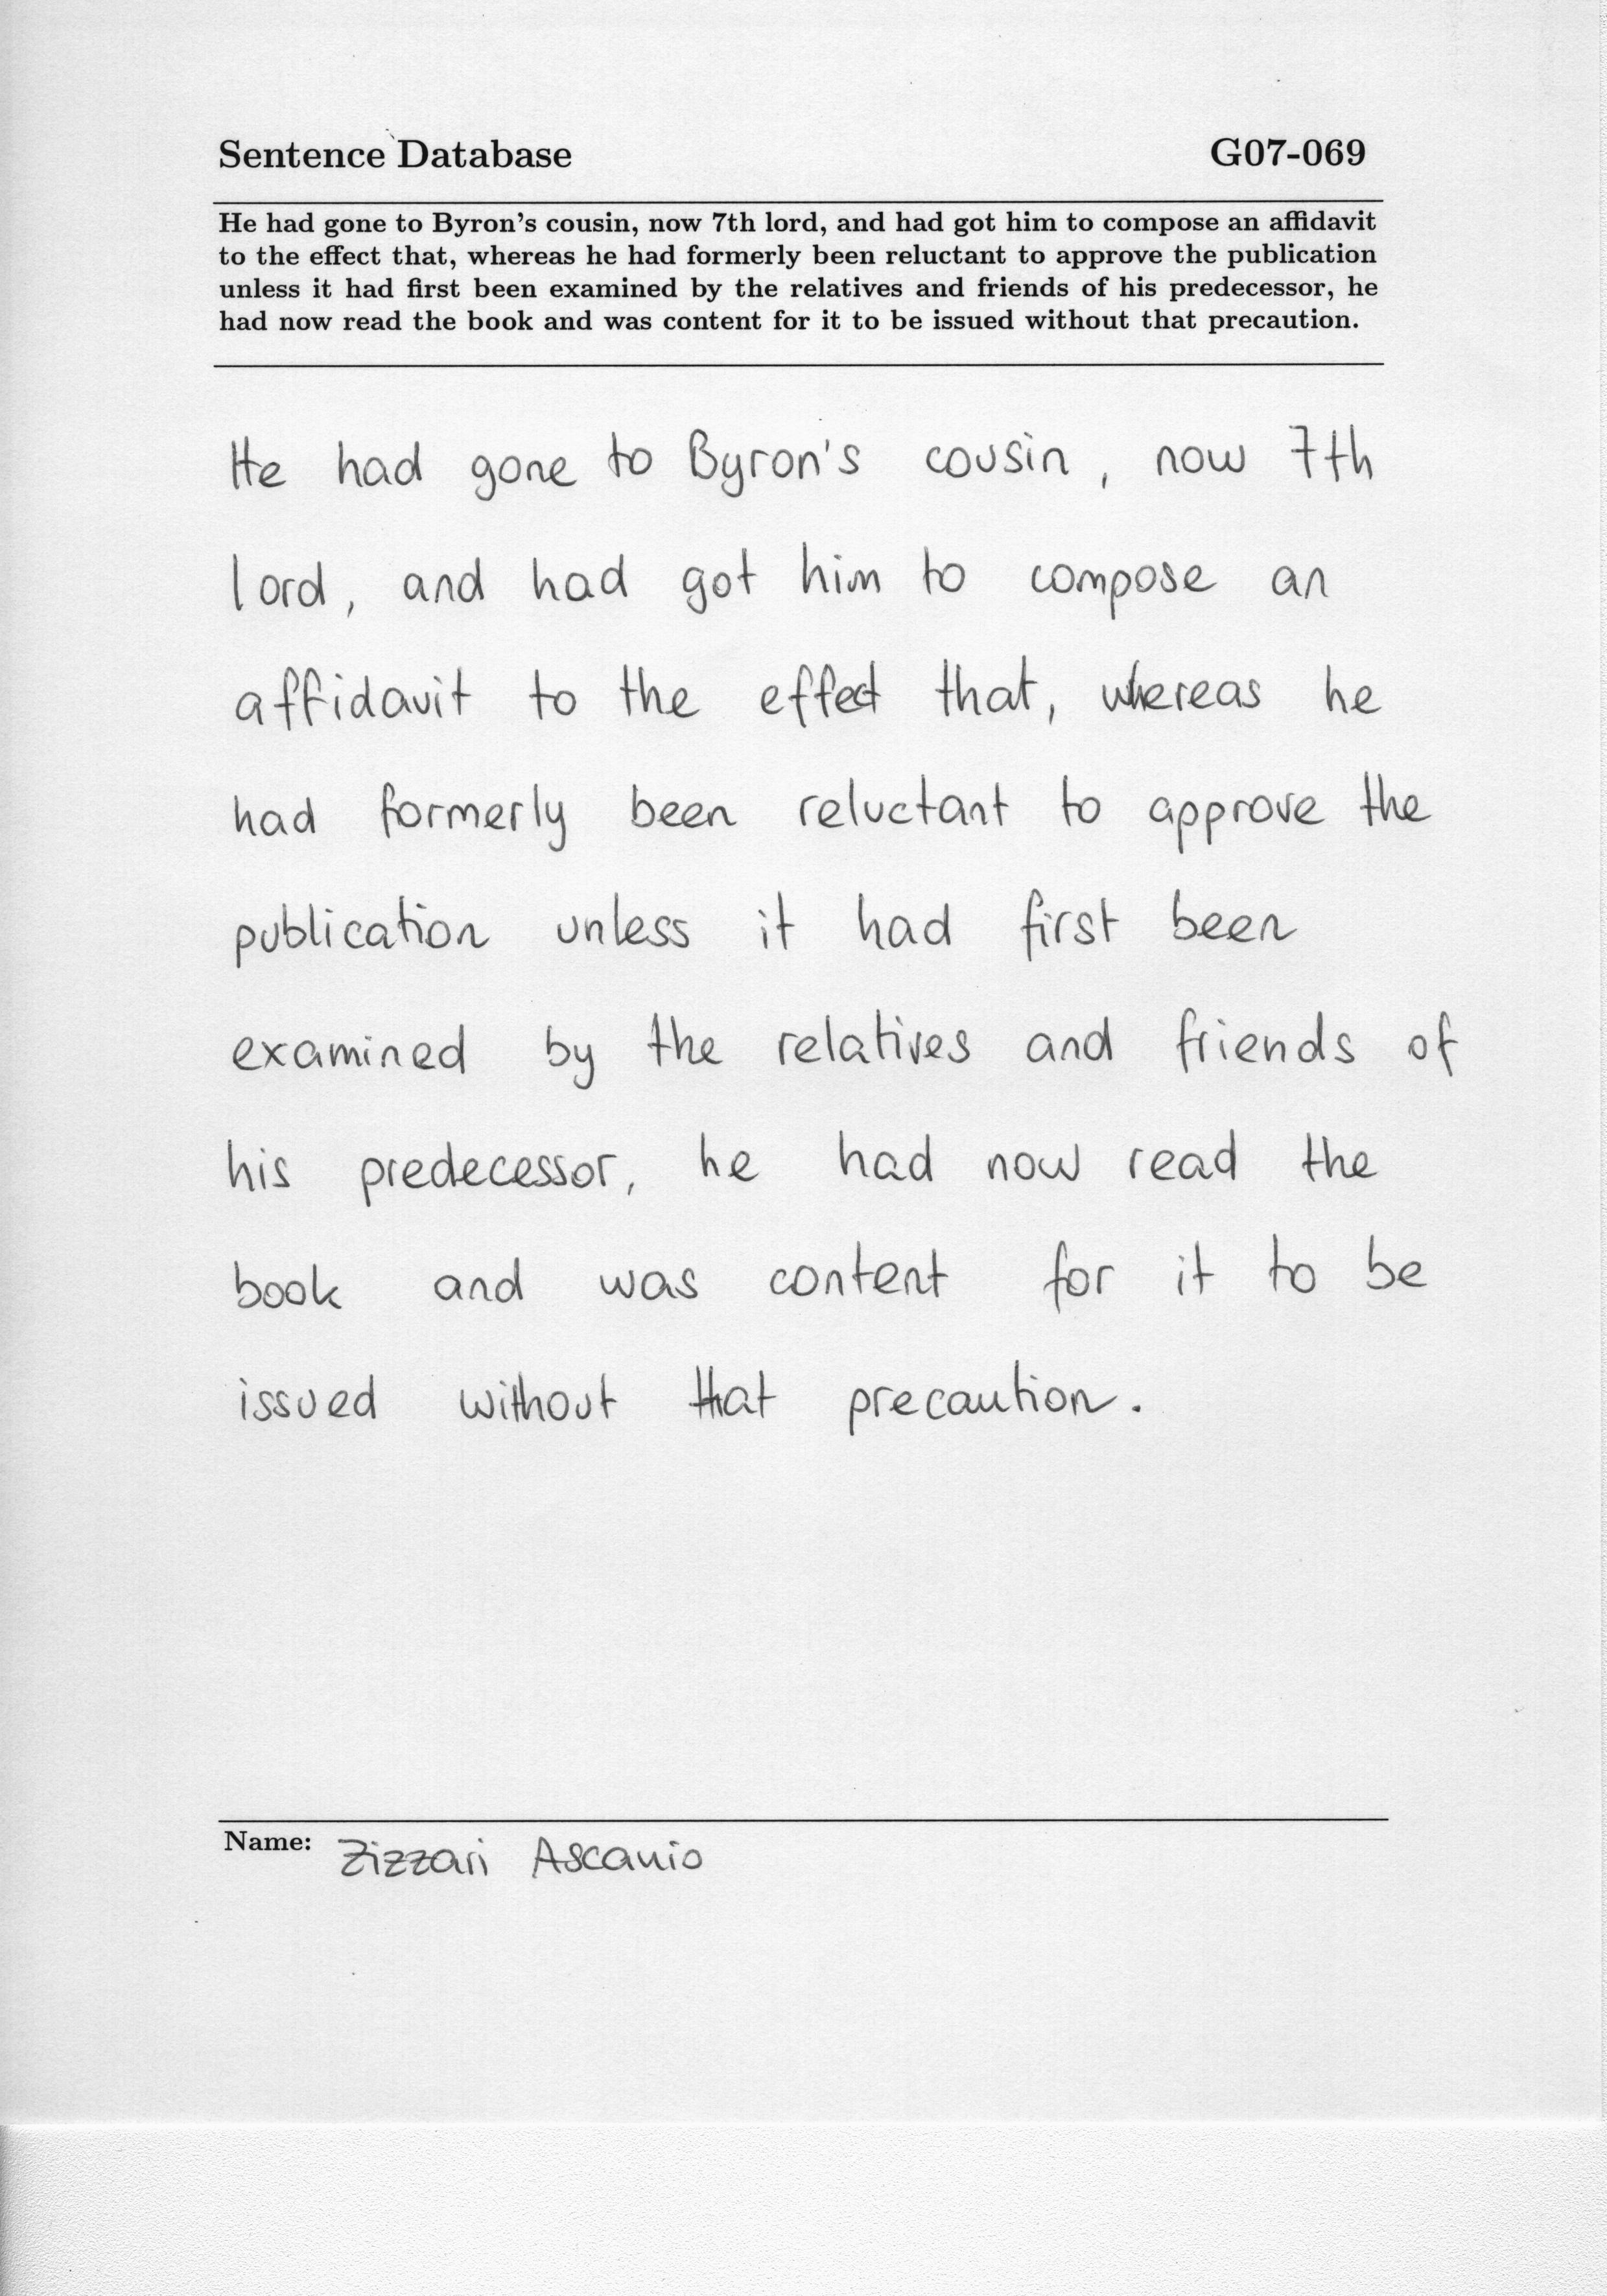 Sentence Database G07-069
He had gone to Byron's cousin, now 7th lord, and had got him to compose an affidavit
to the effect that, whereas he had formerly been reluctant to approve the publication
unless it had first been examined by the relatives and friends of his predecessor, he
had now read the book and was content for it to be issued without that precaution.
He had gone to Byron's cousin, now 7th
lord, and had got him to compose an
affidavit to the effect that, whereas he
had formerly been reluctant to approve the
publication unless it had first been
examined by the relatives and friends of
his predecessor, he had now read the
book and was content for it to be
issued without that precaution.
Name: Zizzari Ascanio